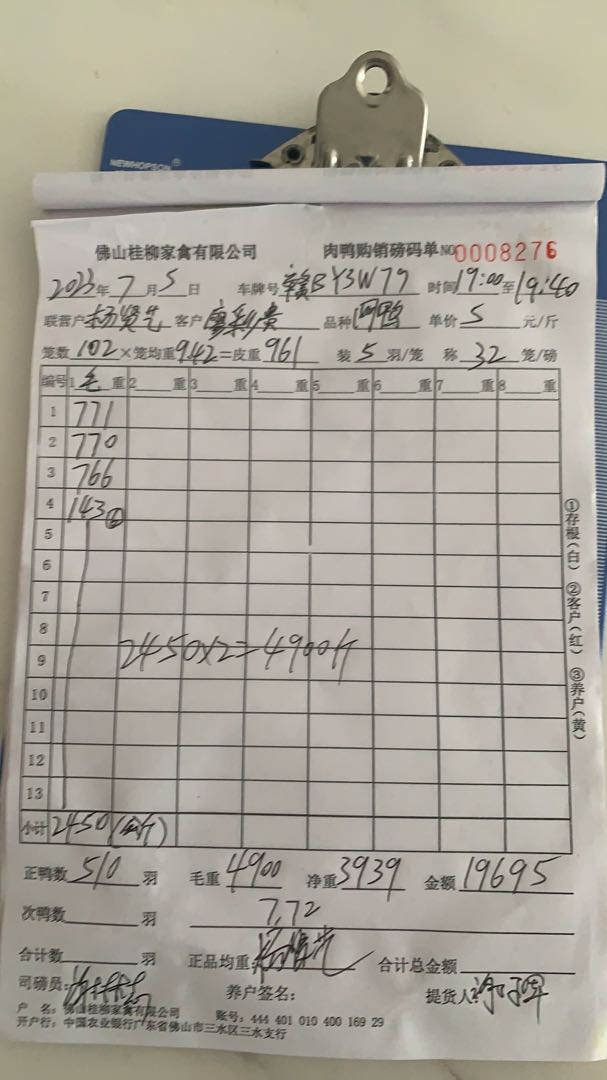 NEWHOPSON®
佛山桂柳家禽有限公司 肉鸭购销磅码单 NO 0008276
2023年7月5日 车牌号 赣BY3W79 时间 19:00至19:40
联营户 杨贤先 客户 品种 单价 5 元/斤
笼数 102×笼均重 9.42=皮重 961 装 5 羽/笼 称 32 笼/磅
编号 1 毛 重 2 重 3 重 4 重 5 重 6 重 7 重 8 重
1 771
2 770
3 766
4 143 ⑥
5
6
7
8
2450×2=4900斤
9
10
11
12
13
小计 2450(公斤)
①存根(白) ②客户(红) ③养户(黄)
正鸭数 510 羽 毛重 4900 净重 3939 金额 19695
次鸭数 羽 7.72
合计数 羽 正品均重 合计总金额
司磅员: 养户签名: 提货人:
户 名: 佛山桂柳家禽有限公司 账号: 444 401 010 400 169 29
开户行: 中国农业银行广东省佛山市三水区三水支行